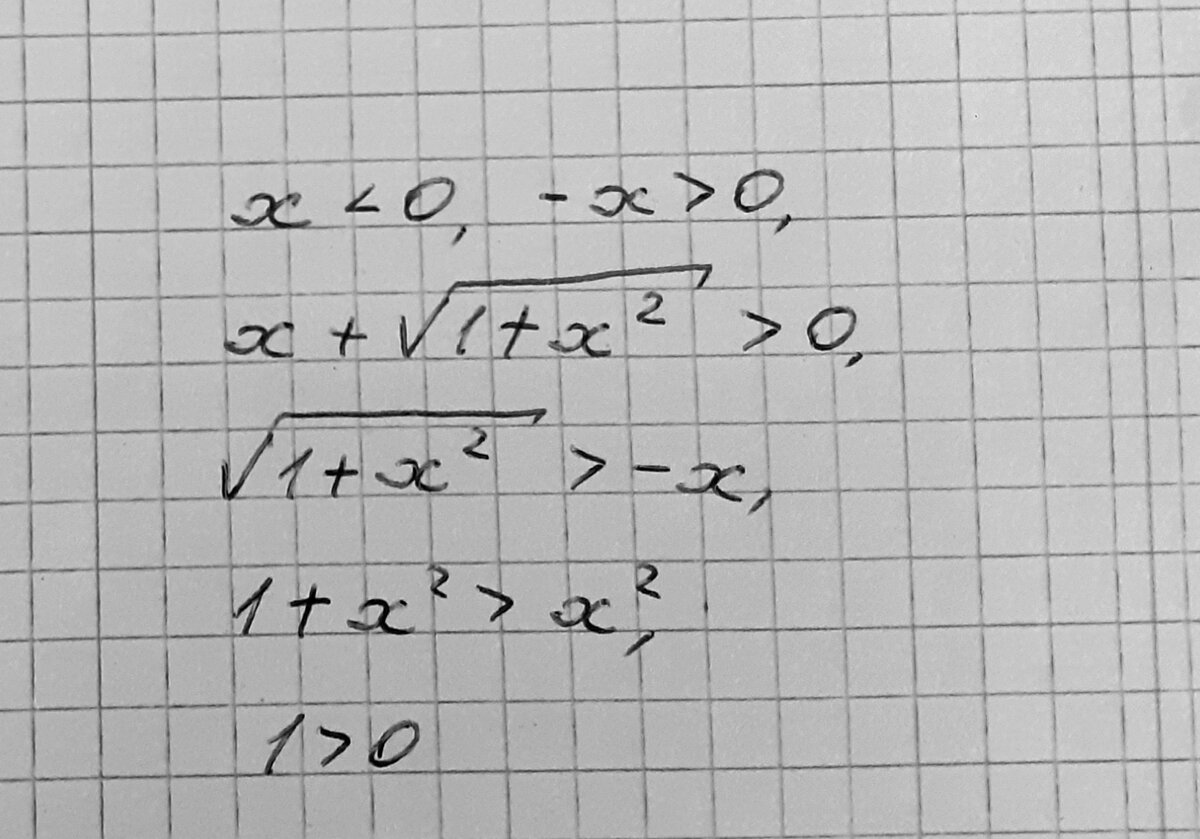 x < 0, -x > 0,
x + √(1 + x²) > 0,
√(1 + x²) > -x,
1 + x² > x²,
1 > 0